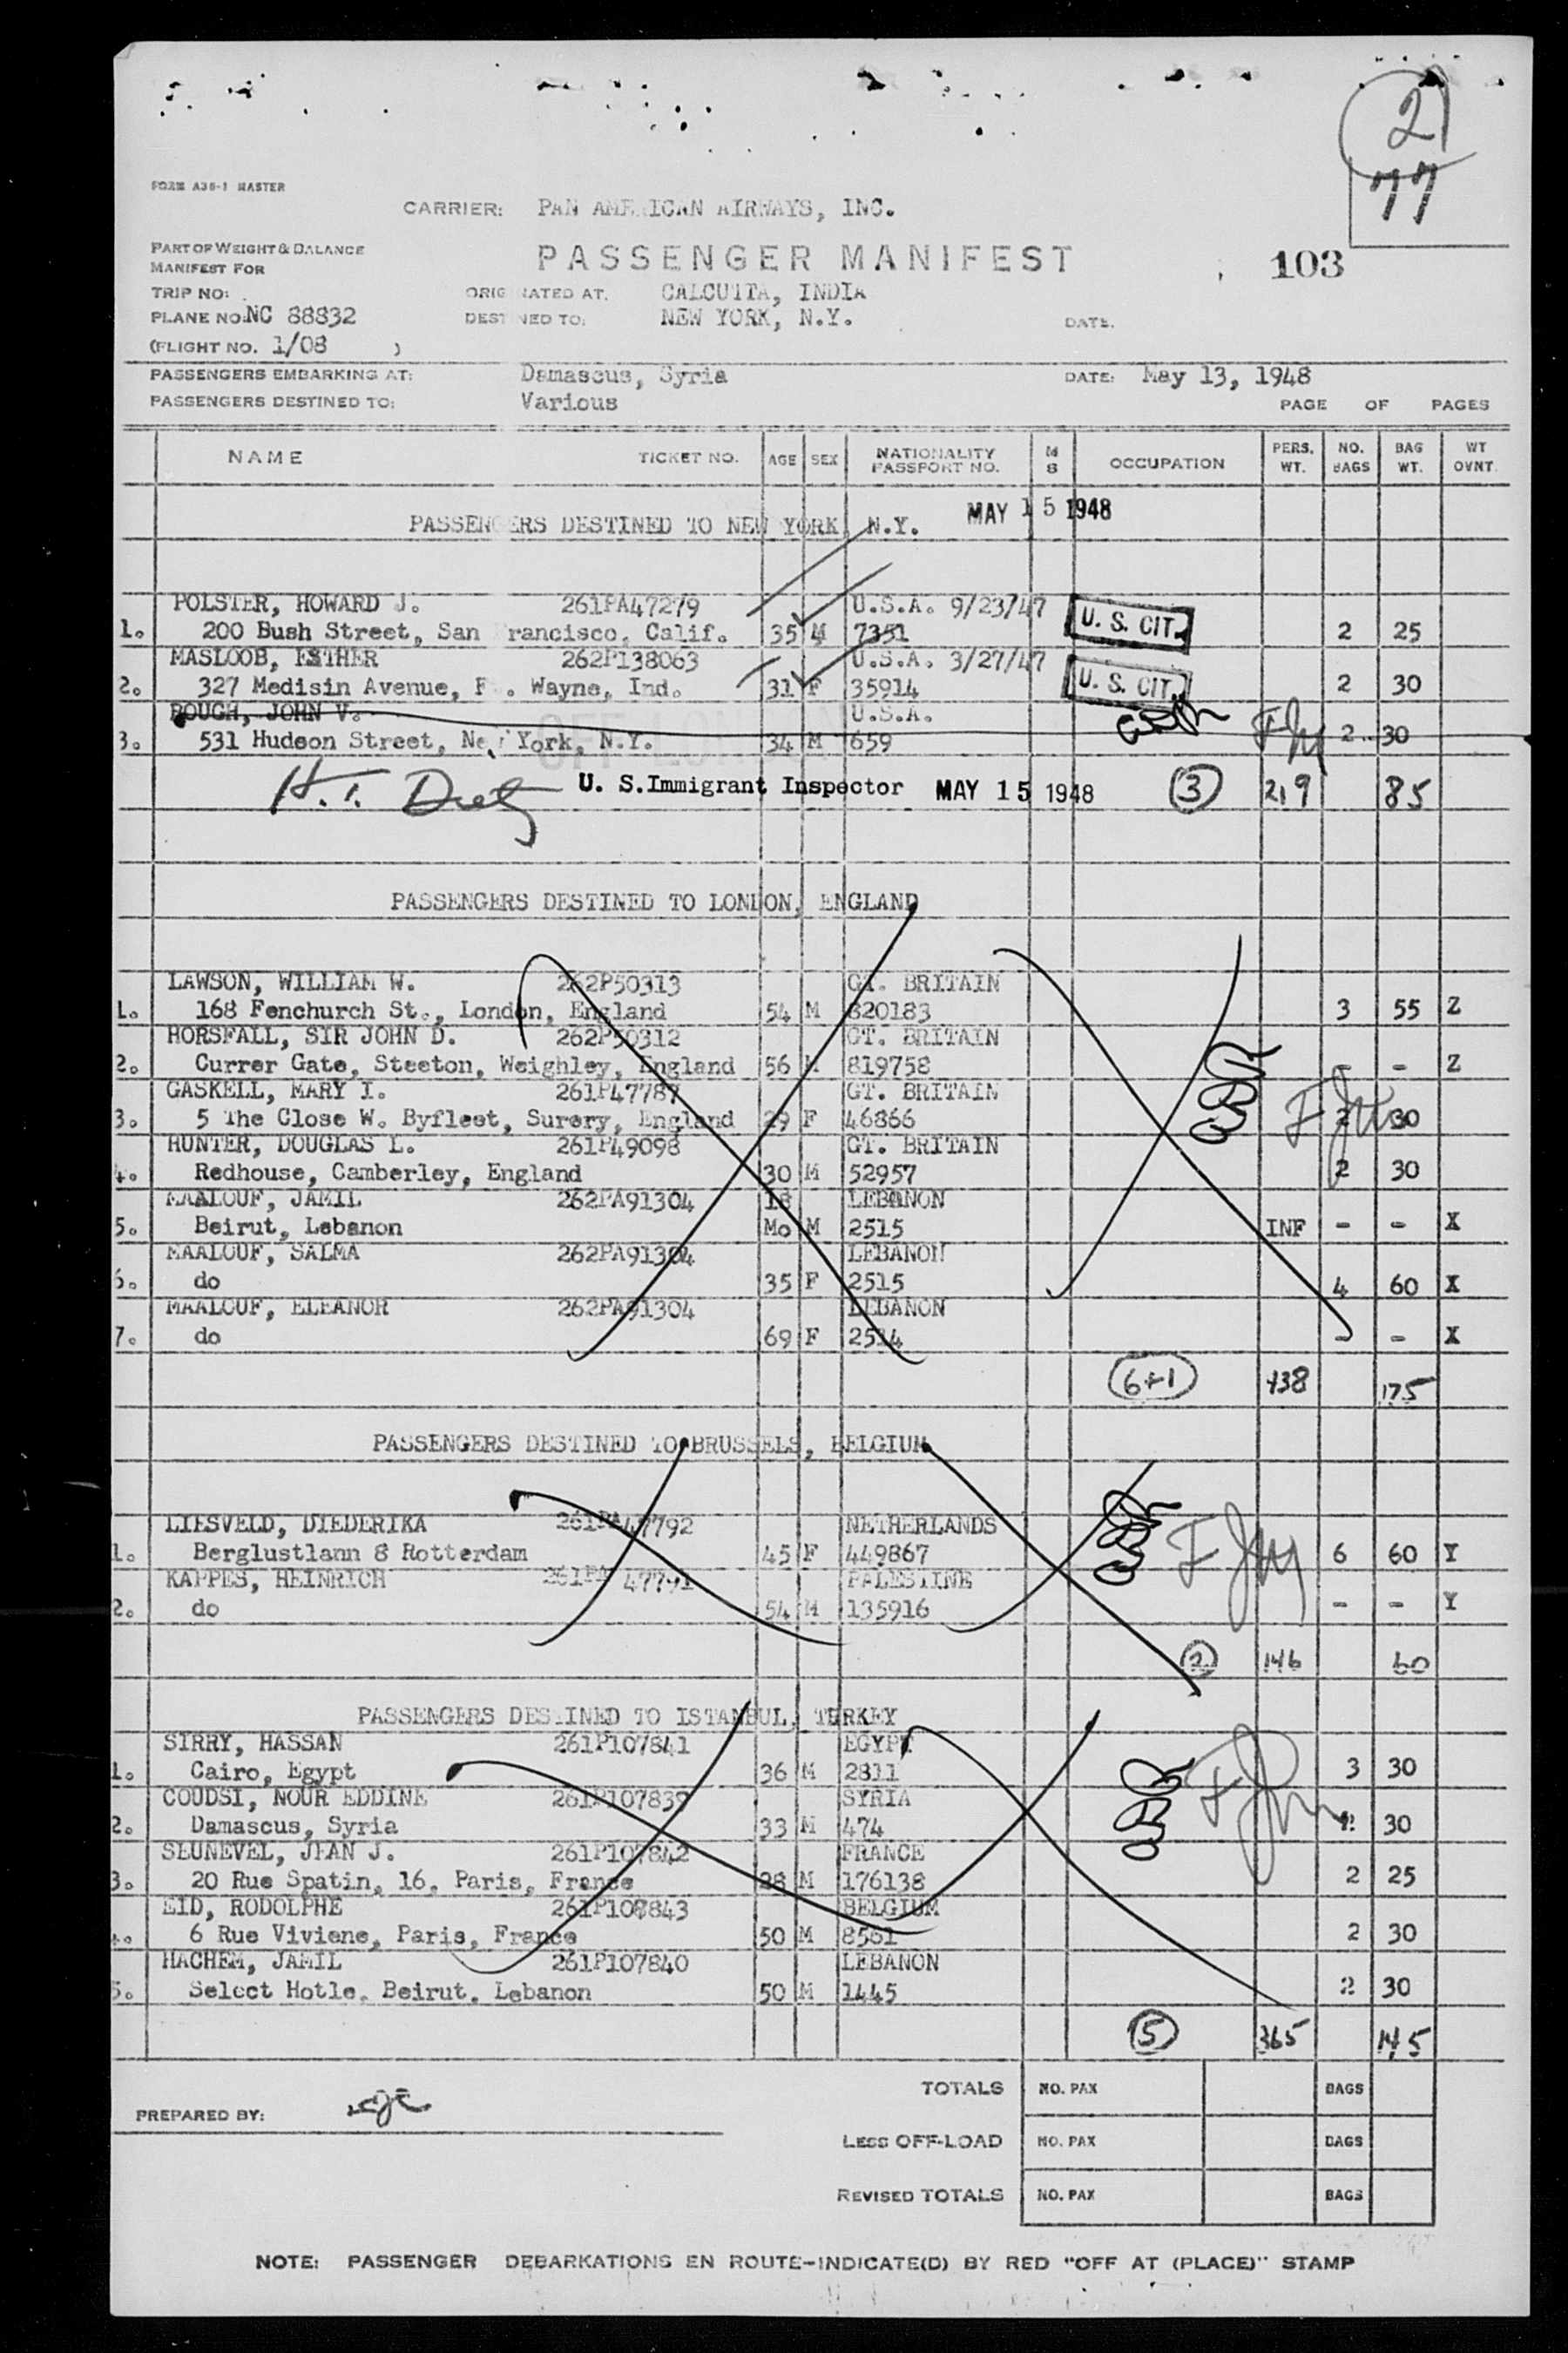 2
77
FORM A38-1 MASTER
CARRIER: PAN AMERICAN AIRWAYS, INC.
PART OF WEIGHT & BALANCE
MANIFEST FOR
PASSENGER MANIFEST
103
TRIP NO: ORIG NATED AT. CALCUTTA, INDIA
PLANE NO: NC 88832 DEST NED TO: NEW YORK, N.Y. DATE.
(FLIGHT NO. 1/08 )
PASSENGERS EMBARKING AT: Damascus, Syria DATE: May 13, 1948
PASSENGERS DESTINED TO: Various PAGE OF PAGES
NAME TICKET NO. AGE SEX NATIONALITY PASSPORT NO. M S OCCUPATION PERS. WT. NO. BAGS BAG WT. WT OVNT.
PASSENGERS DESTINED TO NEW YORK, N.Y. MAY 15 1948
POLSTER, HOWARD J. 261PA47279 U.S.A. 9/23/47
1. 200 Bush Street, San rancisco, Calif. 35 M 7351 U. S. CIT. 2 25
MASLOOB, ESTHER 262P138063 U.S.A. 3/27/47
2. 327 Medisin Avenue, F . Wayne, Ind. 31 F 35914 U. S. CIT. 2 30
ROUGH, JOHN V. U.S.A.
3. 531 Hudson Street, New York, N.Y. 34 M 659 2 30
OFF LONDON
H. T. U. S. Immigrant Inspector MAY 15 1948 3 219 85
PASSENGERS DESTINED TO LONDON, ENGLAND
LAWSON, WILLIAM W. 262P50313 GT. BRITAIN
1. 168 Fenchurch St., London, England 54 M 820183 3 55 Z
HORSFALL, SIR JOHN D. 262P50312 GT. BRITAIN
2. Currer Gate, Steeton, Weighley, England 56 M 819758 - - Z
GASKELL, MARY I. 261P47787 GT. BRITAIN
3. 5 The Close W. Byfleet, Surery, England 29 F 46866 2 30
HUNTER, DOUGLAS L. 261P49098 GT. BRITAIN
4. Redhouse, Camberley, England 30 M 52957 2 30
MAALOUF, JAMIL 262PA91304 18 LEBANON
5. Beirut, Lebanon Mo M 2515 INF - - X
MAALOUF, SALMA 262PA91304 LEBANON
6. do 35 F 2515 4 60 X
MAALOUF, ELEANOR 262PA91304 LEBANON
7. do 69 F 2514 - - X
6+1 938 175
PASSENGERS DESTINED TO BRUSSELS, BELGIUM
LIESVELD, DIEDERIKA 261PA47792 NETHERLANDS
1. Berglustlann 8 Rotterdam 45 F 449867 6 60 Y
KAPPES, HEINRICH 261PA 47791 PALESTINE
2. do 54 M 135916 - - Y
2 146 60
PASSENGERS DES INED TO ISTANBUL, TURKEY
SIRRY, HASSAN 261P107841 EGYPT
1. Cairo, Egypt 36 M 2811 3 30
COUDSI, NOUR EDDINE 261P107839 SYRIA
2. Damascus, Syria 33 M 474 2 30
SEUNEVEL, JEAN J. 261P107842 FRANCE
3. 20 Rue Spatin, 16, Paris, France 28 M 176138 2 25
EID, RODOLPHE 261P107843 BELGIUM
4. 6 Rue Viviene, Paris, France 50 M 8561 2 30
HACHEM, JAMIL 261P107840 LEBANON
5. Select Hotle, Beirut, Lebanon 50 M 1445 2 30
5 365 145
TOTALS NO. PAX BAGS
PREPARED BY:
LESS OFF-LOAD NO. PAX BAGS
REVISED TOTALS NO. PAX BAGS
NOTE: PASSENGER DEBARKATIONS EN ROUTE-INDICATE(D) BY RED "OFF AT (PLACE)" STAMP